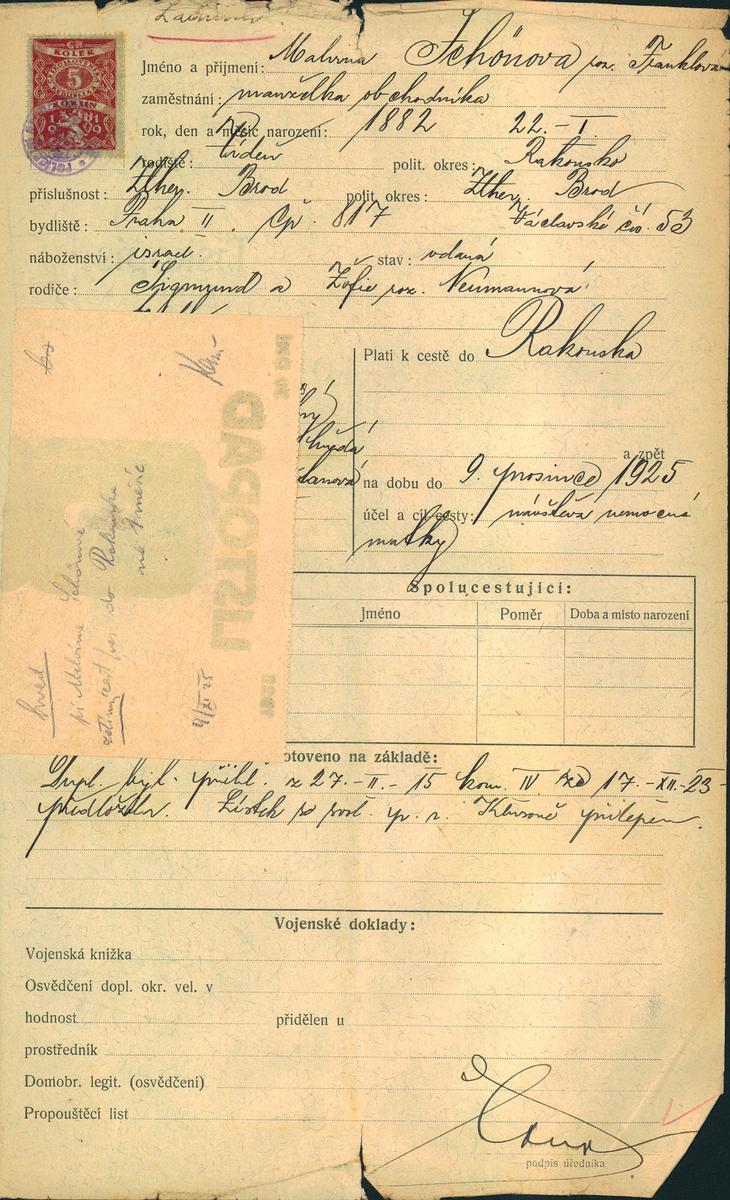 KOLEK
5
KORUN
1919
Jméno a příjmení: Malvina Schönova roz. Franklová
zaměstnání: manželka obchodníka
rok, den a měsíc narození: 1882 22.-I.
rodiště: Vídeň polit. okres: Rakousko
příslušnost: Uher. Brod polit. okres: Uher. Brod
bydliště: Praha II. čp. 817 Václavské čís. 53
náboženství: israel. stav: vdaná
rodiče: Sigmund a Žofie roz. Neumannová
Platí k cestě do Rakouska
a zpět
na dobu do 9. prosince 1925
účel a cíl cesty: návštěva nemocné
matky
LISTOPAD
pí Malvine Schönové
do Rakouska
na 1 měsíc
9/XI 25
Spolucestující:
Jméno Poměr Doba a místo narození
otoveno na základě:
Dupl. byt. přihl. z 27.-II.-15 kom. IV ze 17.-XII.-23
předložila. Lístek p. r. přilepen.
Vojenské doklady:
Vojenská knížka
Osvědčení dopl. okr. vel. v
hodnost přidělen u
prostředník
Domobr. legit. (osvědčení)
Propouštěcí list
podpis úředníka